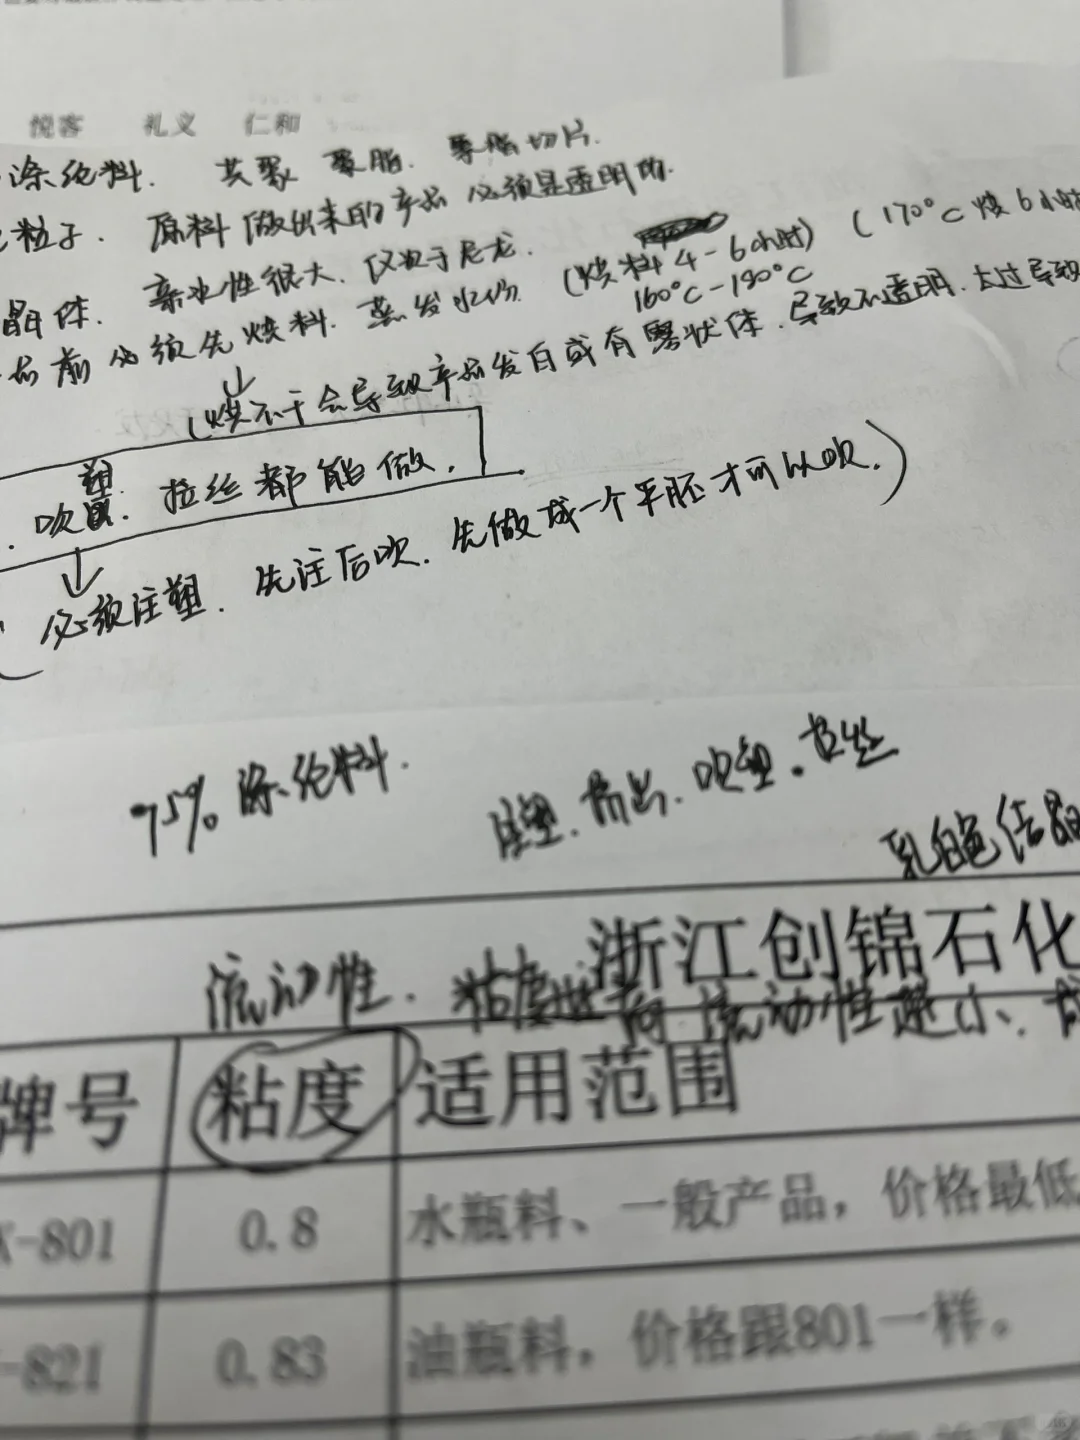 悦客 礼义 仁和
涤纶料. 共聚 聚脂. 聚脂切片.
粒子. 原料做出来的产品必须是透明的.
晶体. 亲水性很大. 仅次于尼龙. (烧料4-6小时) (170°C烧6小时
前必须先烧料. 蒸发水份. 160°C-180°C
(烧不干会导致产品发白或有雾状体. 导致不透明. 太过导致
吹塑. 拉丝都能做.
必须注塑. 先注后吹. 先做成一个平胚才可以吹.)
75% 涤纶料.
注塑. 挤出. 吹塑. 拉丝
乳白色结晶
浙江创锦石化
流动性. 粘度越高 流动性越小.
牌号 粘度 适用范围
-801 0.8 水瓶料、一般产品，价格最低
-821 0.83 油瓶料，价格跟801一样。